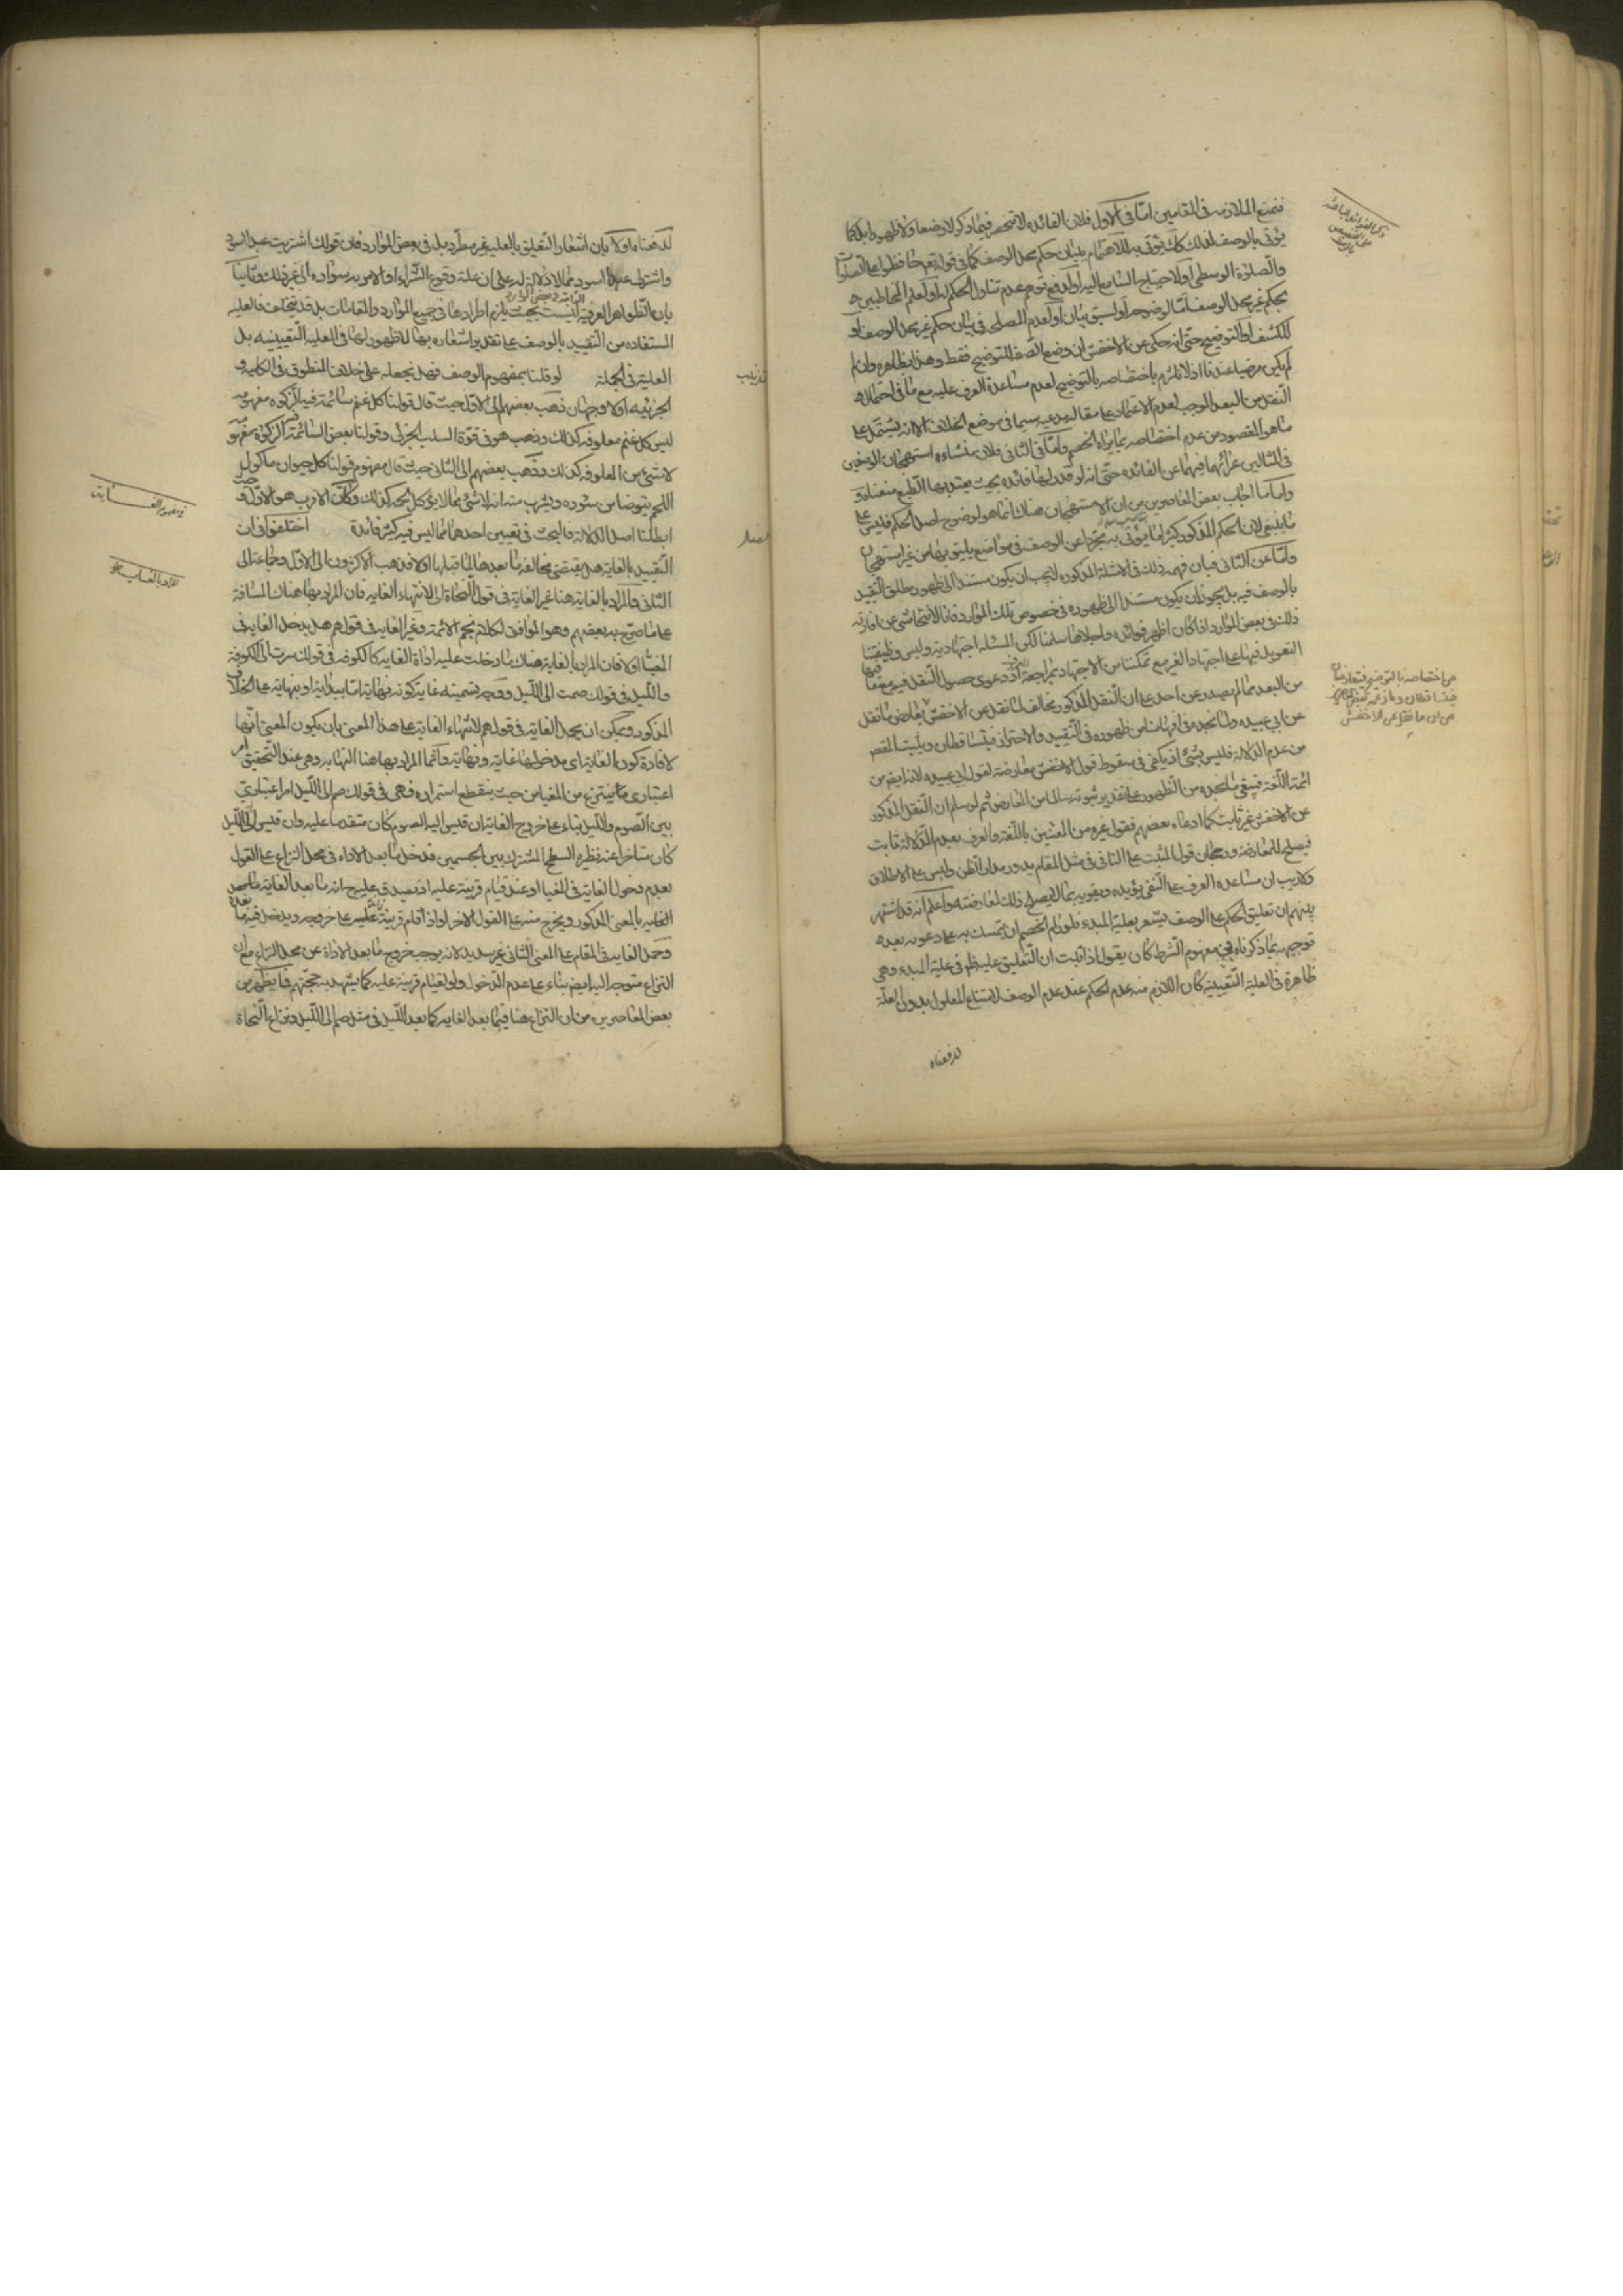 فنمنع الملازمة فى المقامين امّا فى الاول فلان الفائده لا تنحصر فيما ذكر لا وضعا ولا ظهورا بل كما
يؤتى بالوصف لذلك كك يؤتى به للاهتمام ببيان حكم محل الوصف كما فى قوله تعم حافظوا على الصلوات
والصلوة الوسطى او لاحتياج السامع اليه او لدفع توهم عدم تناول الحكم له او لعلم المخاطبين
بحكم غير محل الوصف امّا لوضوحه او لسبق بيان او لعدم المصلحة فى بيان حكم غير محل الوصف او
للكشف او التوضيح حتّى انه حكى عن الاخفش ان وضع الصفة للتوضيح فقط وهذا بظاهره وان
لم يكن مرضيا عندنا اذ لا نلتزم باختصاصه بالتوضيح لعدم مساعدة العرف عليه مع ما فى احتمال
النقل من البعد الموجب لعدم الاعتماد على مقالة مدعيه سيما فى موضع الخلاف الا انه يشتمل على
ما هو المقصود من عدم اختصاصه بما يراه الخصم وامّا فى الثانى فلان منشاء استهجان الوصفين
فى المثالين عرائهما فيهما عن الفائده حتّى انه لو قدر لهما فائده بحيث يعتد بها الطبع منعناه
وامّا ما اجاب بعض المعاصرين من ان الاستهجان هناك انما هو لوضوح اصل الحكم فليس على
ما ينبغى لان الحكم المذكور كثيرا ما يؤتى به مجردا عن الوصف فى مواضع يليق بها من غير استهجان
وامّا عن الثانى فبان فهمه ذلك فى الامثلة المذكوره لا يجب ان يكون مستندا الى ظهور مطلق التقييد
بالوصف فيه بل يجوز ان يكون مستندا الى ظهوره فى خصوص تلك الموارد فانا لا نتحاشى عن افادته
ذلك فى بعض الموارد اذا كان اظهر فوائده واجلاها سلمنا لكن المسئلة اجتهادية وليس وظيفتنا
التعويل فيها على اجتهاد الغير مع تمكننا من الاجتهاد بمراجعة العرف ودعوى حصول النقل فيه مع ما
من البعد مما لم يصدر عن احد على ان النقل المذكور مخالف لما نقل عن الاخفش يعارض ما نقل
عن ابى عبيده ولما نجده فى افهامنا من ظهوره فى التقييد والاحتراز فيتساقطان ويثبت المقصد
من عدم الدلالة فليس بشئ اذ يكفى فى سقوط قول الاخفش معارضة لقول ابى عبيده لانه ايض من
ائمة اللغة فيبقى ما نجده من الظهور على تقدير ثبوته سالما من المعارض ثم لو سلم ان النقل المذكور
عن الاخفش غير ثابت كما ادعاه بعضهم فقول غيره من المعتنين باللغة والعرف بعدم الدلالة ثابت
فيصلح للمعارضة ورجحان قول المثبت على النافى فى مثل المقام يدور مدار الظن وليس على الاطلاق
ولا ريب ان مساعده العرف على النفى يؤيده ويقويه بما لا يصلح ذلك لمعارضته واعلم انه قد اشتهر
بينهم ان تعليق الحكم على الوصف يشعر بعلية المبدء فلو رام الخصم ان يتمسك به على دعويه بعد
توجيهه بما ذكرناه فى مفهوم الشرط كان يقول اذا ثبت ان التعليق عليه ظهر فى علية المبدء وهى
ظاهرة فى العلية التقييدية كان اللازم منه عدم الحكم عند عدم الوصف لامتناع المعلول بدون العلة
لدفعناه
ذكر الفوائد الباقية
من اختصاصه بالتوضيح فتعارضان
فيتساقطان
من ان ما نقل عن الاخفش
لدفعناه اولا بان اشعار التعليق بالعليه غير مطّرد بل فى بعض الموارد فان قولك اشتريت عبدا اسود
واشتر لى عبدا اسود مما لا دلالة له على ان علة وقوع الشراء او الامر به سواده الى غير ذلك وثانيا
بان الظواهر العرفية ليست بحيث يلزم اطرادها فى جميع الموارد والمقامات بل قد يختلف فالعليه
الثابتة فى بعض الموارد
المستفاده من التقييد بالوصف على تقدير اشعاره بها لا ظهور لها فى العليه التقييديه بل
العلية فى الجملة
تذنيب
لو قلنا بمفهوم الوصف فهل نجعله على خلاف المنطوق فى الكليه و
الجزئيه اولا وجهان ذهب بعضهم الى الاول حيث قال قولنا كل غنم سائمة فيه الزكوه مفهومه
ليس كل غنم معلوفه كذلك وذهب هو فى قوّة السلب الجزئى وقولنا بعض السائمة فيه الزكوة مفهومه
لا شئ من المعلوفه كذلك وذهب بعضهم الى الثانى حيث قال مفهوم قولنا كل حيوان ماكول
اللحم يتوضا من سئوره ويشرب منه انه لا شئ مما لا يؤكل لحمه كذلك وكأنّ الاقرب هو الاول و حيث
ابطلنا اصل الدلالة فالبحث فى تعيين احدهما مما ليس فيه كثير فائدة
فصل
اختلفوا فى ان
التقييد بالغاية هل يقتضى مخالفه ما بعدها لما قبلها او لا فذهب الاكثرون الى الاول وجماعة الى
الثانى والمراد بالغاية هنا غير الغاية فى قول النحاة الى لانتهاء الغايه فان المراد بها هناك المسافة
على ما صرّح به بعضهم وهو الموافق لكلام نجم الائمة وغير الغاية فى قولهم هل يدخل الغاية فى
المغيّا اولا فان المراد بالغاية هناك ما دخلت عليه اداة الغايه كالكوفه فى قولك سرت الى الكوفة
والليل فى قولك صمت الى الليل ووجه تسميته غاية كونه نهاية امّا بدايته او نهايته على الخلاف
المذكور ويمكن ان يحمل الغاية فى قولهم لانتهاء الغاية على هذا المعنى بان يكون المعنى انها
لافادة كون الغاية اى مدخولها غاية ونهاية وانّما المراد بها هنا النهايه وهى عند التحقيق امر
اعتبارى ما ينتزع من المغيا من حيث ينقطع استمراره فهى فى قولك صم الى الليل امر اعتبارىّ
بين الصوم والليل بناء على خروج الغاية ان قيس اليه الصوم كان متقدما عليه وان قيس اليه الليل
كان متاخرا عنه نظيره السطح المشترك بين الجسمين فدخل ما بعد الاداه فى محل النزاع على القول
بعدم دخول الغاية فى المغيا او عند قيام قرينة عليه اذ يصدق عليه ح انه ما بعد الغاية
الغايه بالمعنى المذكور ويخرج منه على القول الاخر او اذا قام قرينة عليه على خروجه ويدخل فيه ما بعد
وحمل الغاية فى المقام على المعنى الثانى غير سديد لانه يوجب خروج ما بعد الاداة عن محل النزاع مع ان
النزاع متوجه اليه ايض بناء على عدم الدخول ولو لقيام قرينة عليه كما يشهد به حججهم فما يظهر من
بعض المعاصرين من ان النزاع هنا فيما بعد الغايه كما بعد الليل فى مثل صم الى الليل ونزاع النحاة
فى مفهوم الغاية
المراد بالغاية